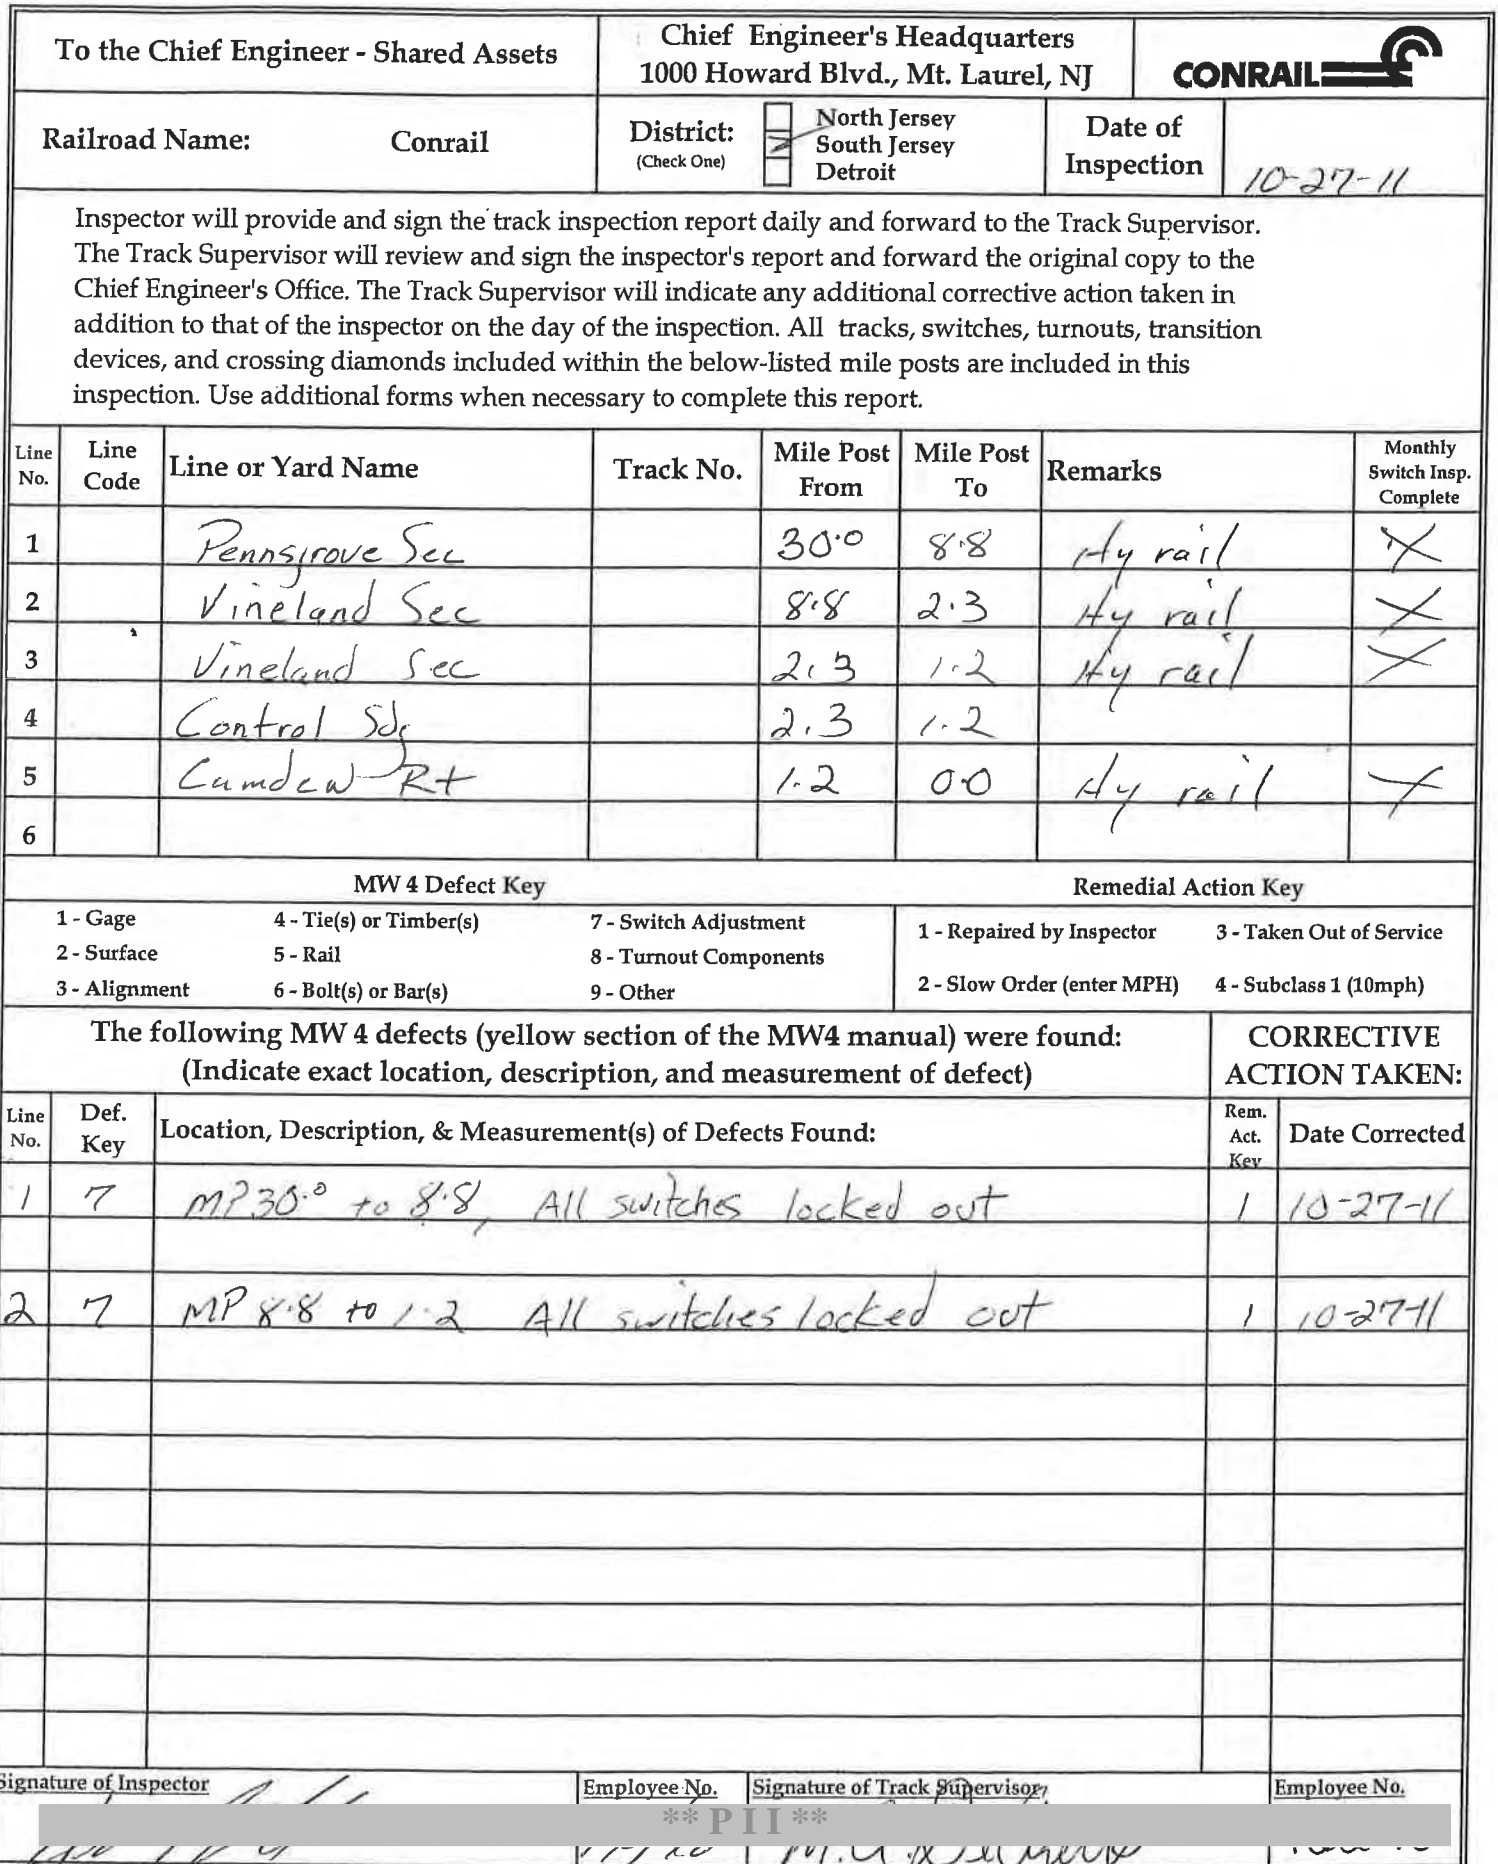 To the Chief Engineer - Shared Assets
Chief Engineer's Headquarters
1000 Howard Blvd., Mt. Laurel, NJ
CONRAIL
Railroad Name: Conrail
District:
(Check One)
North Jersey
South Jersey
Detroit
Date of
Inspection
10-27-11
Inspector will provide and sign the track inspection report daily and forward to the Track Supervisor.
The Track Supervisor will review and sign the inspector's report and forward the original copy to the
Chief Engineer's Office. The Track Supervisor will indicate any additional corrective action taken in
addition to that of the inspector on the day of the inspection. All tracks, switches, turnouts, transition
devices, and crossing diamonds included within the below-listed mile posts are included in this
inspection. Use additional forms when necessary to complete this report.
Line No. Line Code Line or Yard Name Track No. Mile Post From Mile Post To Remarks Monthly Switch Insp. Complete
1 Pennsgrove Sec 30.0 8.8 Hy rail X
2 Vineland Sec 8.8 2.3 Hy rail X
3 Vineland Sec 2.3 1.2 Hy rail X
4 Control Sdg 2.3 1.2
5 Camden Rt 1.2 0.0 Hy rail X
6
MW 4 Defect Key Remedial Action Key
1 - Gage 4 - Tie(s) or Timber(s) 7 - Switch Adjustment
2 - Surface 5 - Rail 8 - Turnout Components
3 - Alignment 6 - Bolt(s) or Bar(s) 9 - Other
1 - Repaired by Inspector 3 - Taken Out of Service
2 - Slow Order (enter MPH) 4 - Subclass 1 (10mph)
The following MW 4 defects (yellow section of the MW4 manual) were found:
(Indicate exact location, description, and measurement of defect)
CORRECTIVE
ACTION TAKEN:
Line No. Def. Key Location, Description, & Measurement(s) of Defects Found: Rem. Act. Key Date Corrected
1 7 MP30.0 to 8.8, All switches locked out 1 10-27-11
2 7 MP 8.8 to 1.2 All switches locked out 1 10-27-11
Signature of Inspector Employee No. Signature of Track Supervisor Employee No.
** P I I **